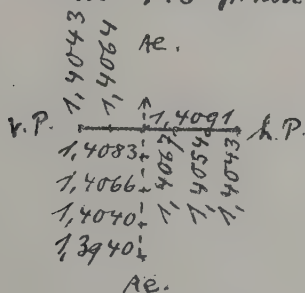 1,4043
1,4064
Ae.
v. P.
1,4091
h. P.
1,4083
1,4066
1,4040
1,3940
1,4067
1,4054
1,4043
Ae.